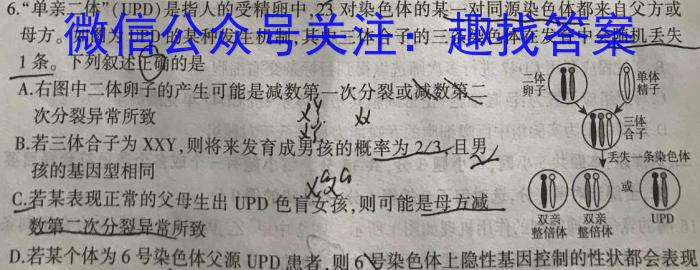 6."单亲二体"(UPD)是指人的受精卵中,23对染色体的某一对同源染色体都来自父方或
母方。
微信公众号关注:趣找答案
1条。下列叙述正确的是
A.右图中二体卵子的产生可能是减数第一次分裂或减数第二
次分裂异常所致
B.若三体合子为XXY,则将来发育成男孩的概率为2/3,且男
孩的基因型相同
C.若某表现正常的父母生出UPD色盲女孩,则可能是母方减
数第二次分裂异常所致
D.若某个体为6号染色体父源UPD患者,则6号染色体上隐性基因控制的性状都会表现
二体
卵子
单体
精子
三体
合子
丢失一条染色体
或
双亲
整倍体
双亲
整倍体
UPD